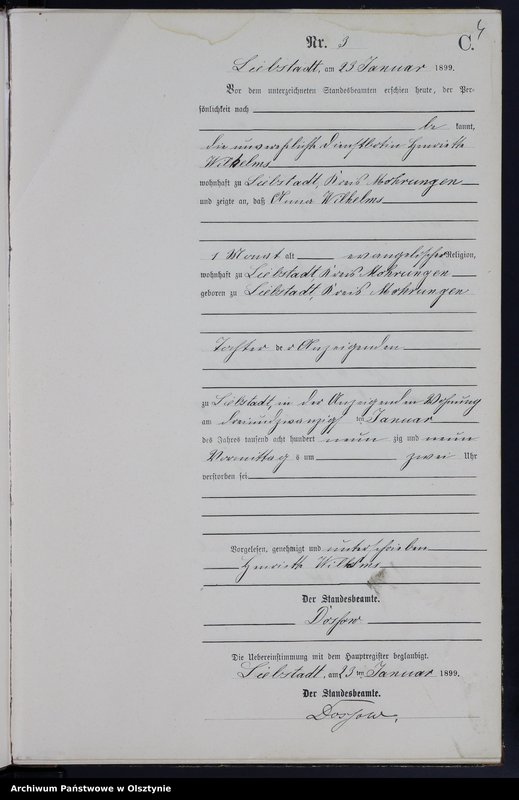 4
Nr. 3 C.
Liebstadt, am 23 Januar 1899.
Vor dem unterzeichneten Standesbeamten erschien heute, der Per-
sönlichkeit nach
be kannt,
die unverehelichte Dienstbotin Henriette
Wilhelms
wohnhaft zu Liebstadt, Kreis Mohrungen
und zeigte an, daß Anna Wilhelms
1 Monat alt evangelischer Religion,
wohnhaft zu Liebstadt, Kreis Mohrungen
geboren zu Liebstadt, Kreis Mohrungen
Tochter der Anzeigenden
zu Liebstadt, in der Anzeigenden Wohnung
am dreiundzwanzigsten Januar
des Jahres tausend acht hundert neun zig und neun
Vormittag s um zwei Uhr
verstorben sei
Vorgelesen, genehmigt und unterschrieben
Henriette Wilhelms
Der Standesbeamte.
Dossow
Die Uebereinstimmung mit dem Hauptregister beglaubigt.
Liebstadt, am 23 ten Januar 1899.
Der Standesbeamte.
Dossow.
Archiwum Państwowe w Olsztynie